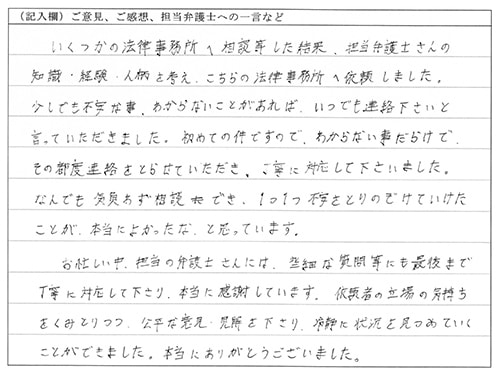 (記入欄)ご意見、ご感想、担当弁護士への一言など
いくつかの法律事務所へ相談等した結果、担当弁護士さんの
知識・経験・人柄を考え、こちらの法律事務所へ依頼しました。
少しでも不安な事、わからないことがあれば、いつでも連絡下さいと
言っていただきました。初めての件ですので、わからない事だらけで、
その都度連絡をとらせていただき、ご丁寧に対応して下さいました。
なんでも気兼ねず相談でき、1つ1つ不安をとりのぞけていけた
ことが、本当によかったな、と思っています。
お忙しい中、担当の弁護士さんには、些細な質問等にも最後まで
丁寧に対応して下さり、本当に感謝しています。依頼者の立場の気持ち
をくみとりつつ、公平な意見・見解を下さり、冷静に状況を見つめていく
ことができました。本当にありがとうございました。